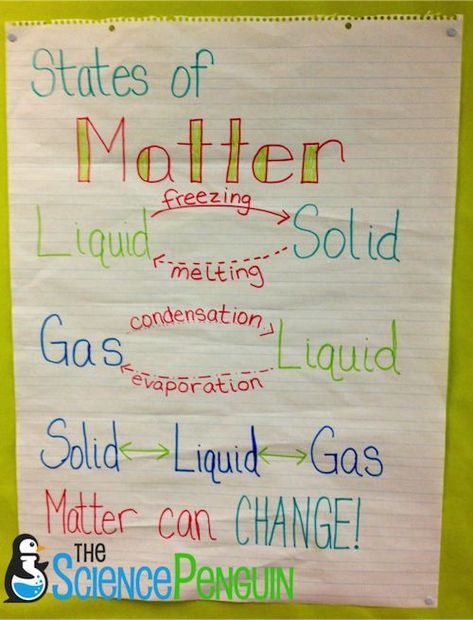 States of
Matter
freezing
Liquid Solid
melting
condensation
Gas Liquid
evaporation
Solid ↔ Liquid ↔ Gas
Matter can CHANGE!
THE
SCIENCEPENGUIN